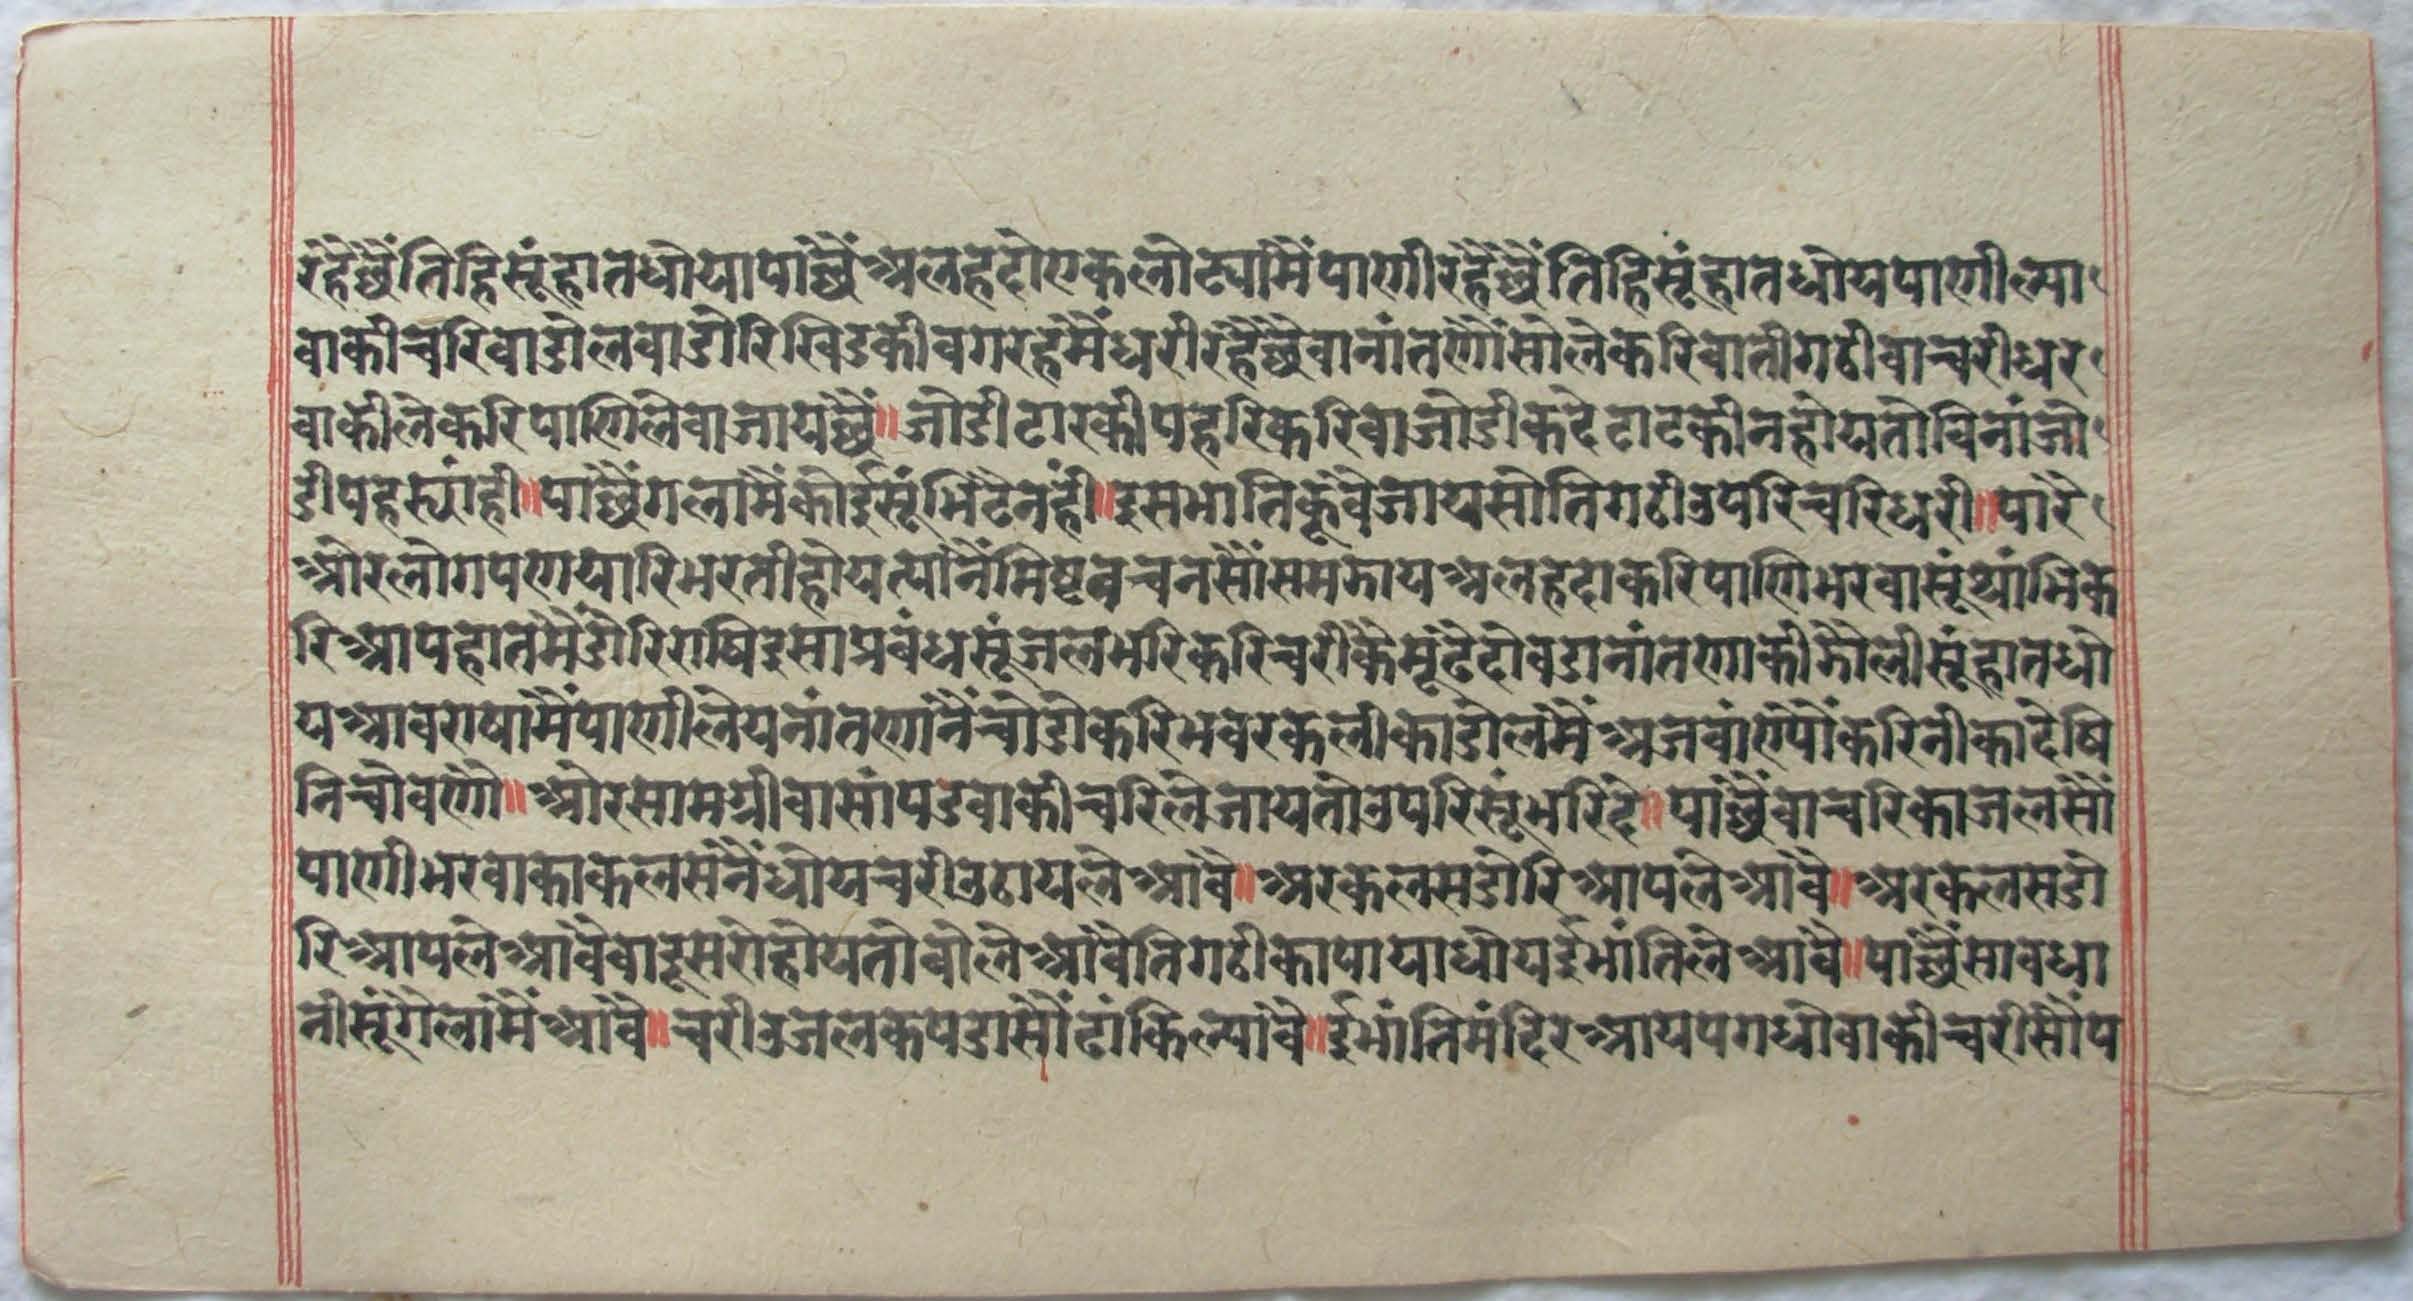 रहैछैंतिहिसूंहातधोयापाछैंअलहदोएकलोट्यामैंपाणीरहैछैंतिहिसूंहातधोयपाणील्या
वाकीचरिवाडोलवाडोरिखिडकीवगरहमैंधरीरहैछैवानांतणौंसोलेकरिवातीगढीवाचरीधर
वाकीलेकरिपाणिलेवाजायछैं॥जोडीटारकीपहरिकरिवाजोडीकदेटाटकीनहोयतोविनांजो
डीपहस्यांही॥पाछैंगलामैंकोईसूंभिंटैनहीं॥इसभातिकूवैजायसोतिगढीउपरिचरिधरी॥पारै
औरलोगपणयारिभरतीहोयत्यांनैंमिष्टवचनसौंसमझायअलहदाकरिपाणिभरवासूंथांभिक
रिआपहातमैंडोरिराषिइसाप्रबंधसूंजलभरिकरिचरीकैमूंढैदोवडानांतणाकीझोलीसूंहातधो
यआवराषामैंपाणीलेयनांतणांनैंचोडोकरिभवरकलीकाडोलमैंअजवांणेपोंकरिनीकादेषि
निचोवणो॥औरसामग्रीवासांपडवाकीचरिलेजायतोउपरिसूंभरिदे॥पाछैंवाचरिकाजलसौं
पाणीभरवाकाकलसनैंधोयचरीउठायलेआवै॥अरकलसडोरिआपलेआवै॥अरकलसडो
रिआपलेआवैवादूसरोहोयतोवोलेआवैतिगढीकापायाधोयईभांतिलेआवै॥पाछैंसावधा
नीसूंगैलामैंआवै॥चरीउजलकपडासौंढांकिल्यावै॥ईभांतिमंदिरआयपगधोवाकीचरीसौंप